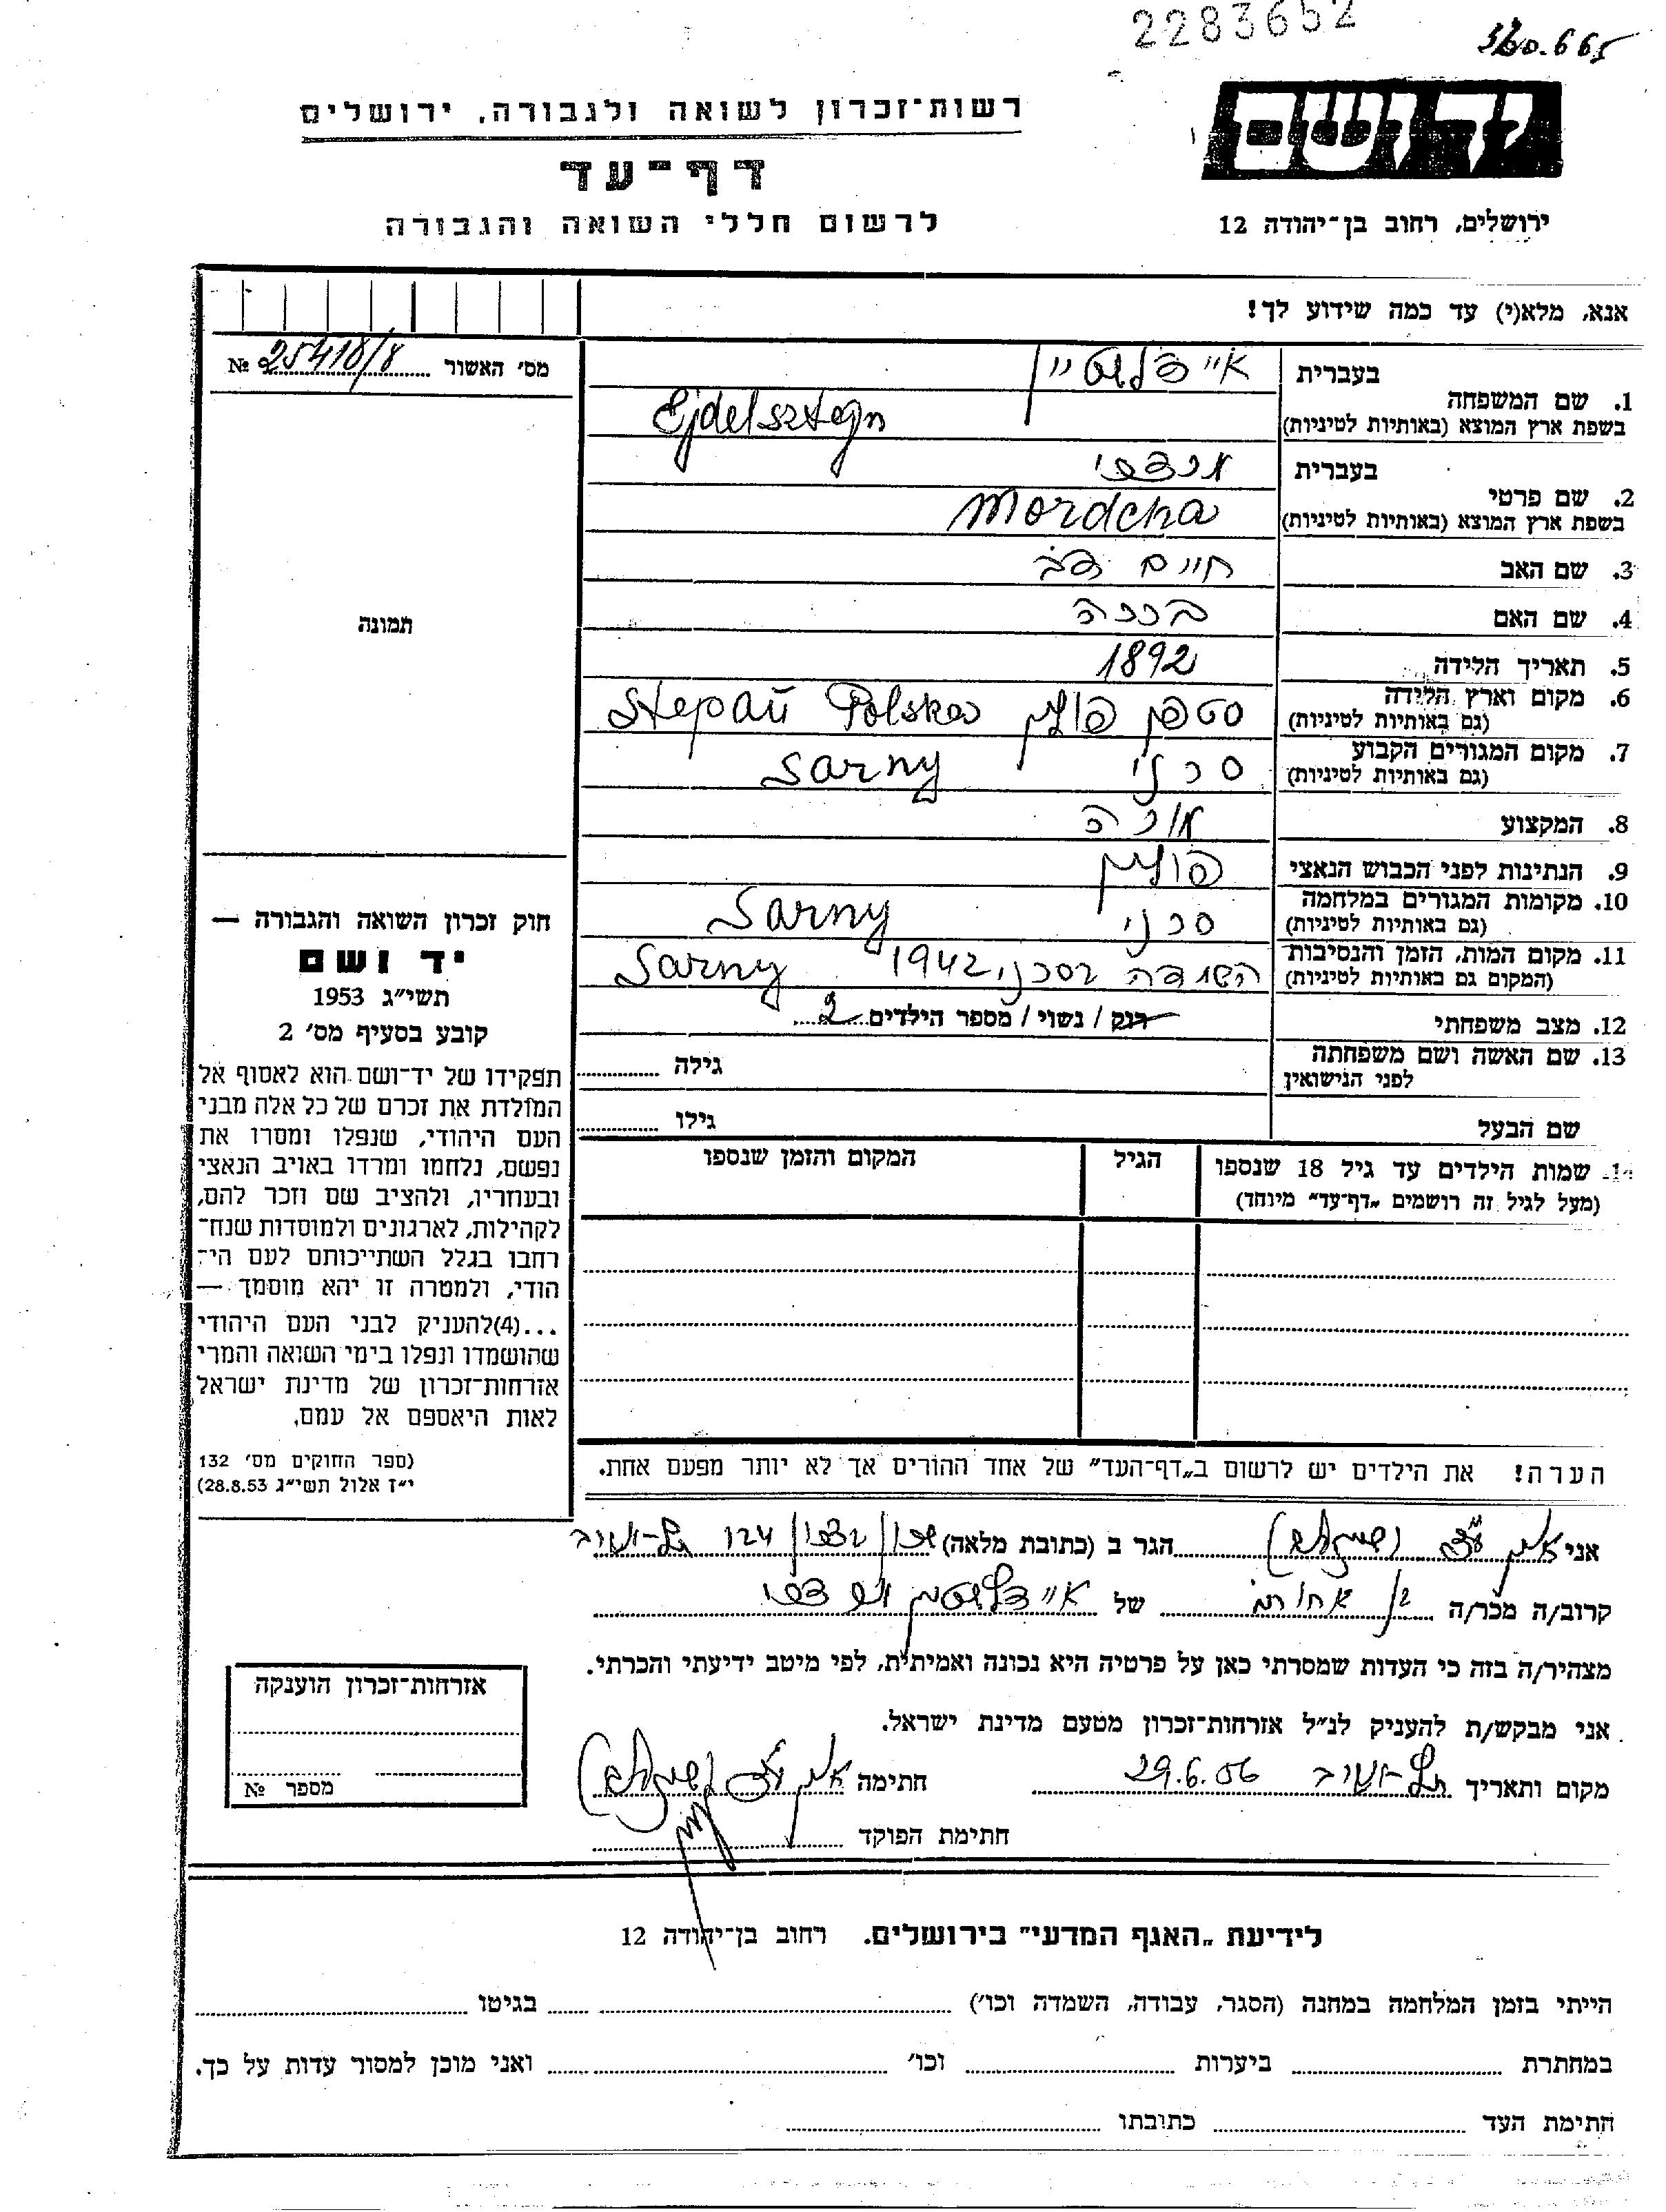 2283652
יד ושם
רשות־זכרון לשואה ולגבורה, ירושלים
דף־עד
לרשום חללי השואה והגבורה
ירושלים, רחוב בן־יהודה 12
אנא, מלא(י) עד כמה שידוע לך!
מס׳ האשור 25418/8 №
1. שם המשפחה
בעברית
בשפת ארץ המוצא (באותיות לטיניות) Ejdelsztejn
2. שם פרטי
בעברית מרדכי
בשפת ארץ המוצא (באותיות לטיניות) Mordcha
3. שם האב חיים דב
4. שם האם ברכה
5. תאריך הלידה 1892
6. מקום וארץ הלידה
(גם באותיות לטיניות) סטפן פולין Stepań Polska
7. מקום המגורים הקבוע
(גם באותיות לטיניות) סרני Sarny
8. המקצוע מורה
9. הנתינות לפני הכבוש הנאצי פולין
10. מקומות המגורים במלחמה
(גם באותיות לטיניות) סרני Sarny
11. מקום המות, הזמן והנסיבות
(המקום גם באותיות לטיניות) השמדה בסרני 1942 Sarny
12. מצב משפחתי רוק / נשוי / מספר הילדים 2
13. שם האשה ושם משפחתה
לפני הנישואין גילה
שם הבעל גילו
14. שמות הילדים עד גיל 18 שנספו
(מעל לגיל זה רושמים „דף־עד״ מיוחד)
הגיל
המקום והזמן שנספו
תמונה
חוק זכרון השואה והגבורה —
יד ושם
תשי״ג 1953
קובע בסעיף מס׳ 2
תפקידו של יד־ושם הוא לאסוף אל
המולדת את זכרם של כל אלה מבני
העם היהודי, שנפלו ומסרו את
נפשם, נלחמו ומרדו באויב הנאצי
ובעוזריו, ולהציב שם וזכר להם,
לקהילות, לארגונים ולמוסדות שנח־
רחבו בגלל השתייכותם לעם הי־
הודי, ולמטרה זו יהא מוסמך —
...(4)להעניק לבני העם היהודי
שהושמדו ונפלו בימי השואה והמרי
אזרחות־זכרון של מדינת ישראל
לאות היאספם אל עמם.
(ספר החוקים מס׳ 132
י״ז אלול תשי״ג 28.8.53)
הערה! את הילדים יש לרשום ב„דף־העד״ של אחד ההורים אך לא יותר מפעם אחת.
אני הגר ב (כתובת מלאה) 124 תל-אביב
קרוב/ה מכר/ה בן אחותו של
מצהיר/ה בזה כי העדות שמסרתי כאן על פרטיה היא נכונה ואמיתית, לפי מיטב ידיעתי והכרתי.
אני מבקש/ת להעניק לנ״ל אזרחות־זכרון מטעם מדינת ישראל.
מקום ותאריך תל-אביב 29.6.56 חתימה
חתימת הפוקד
אזרחות־זכרון הוענקה
מספר №
לידיעת „האגף המדעי״ בירושלים. רחוב בן־יהודה 12
הייתי בזמן המלחמה במחנה (הסגר, עבודה, השמדה וכו׳) בגיטו
במחתרת ביערות וכו׳ ואני מוכן למסור עדות על כך.
חתימת העד כתובתו